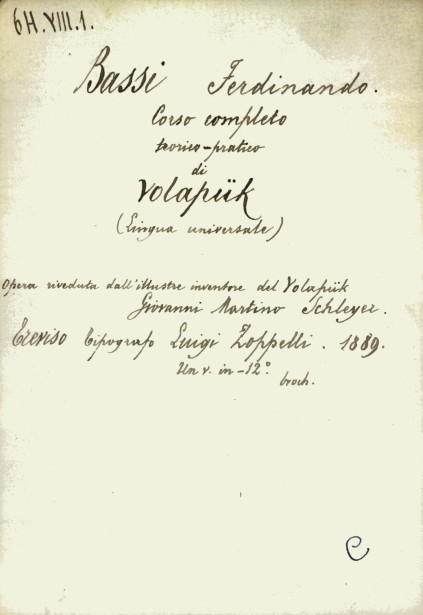 6H.VIII.1.
Bassi Ferdinando.
Corso completo
teorico-pratico
di
Volapük
(Lingua universale)
Opera riveduta dall'illustre inventore del Volapük
Giovanni Martino Schleyer.
Treviso tipografo Luigi Zoppelli. 1889.
Un v. in-12°.
broch.
C